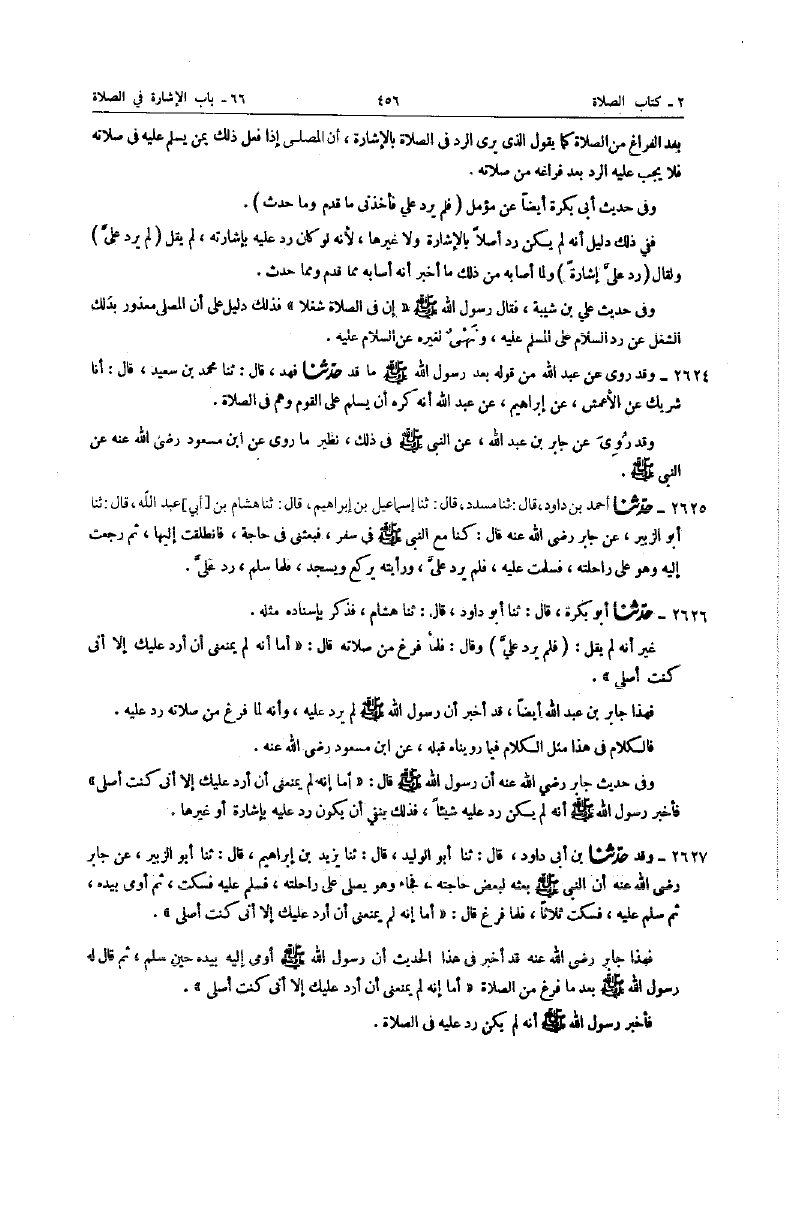 ٢ ـ كتاب الصلاة ٤٥٦ ٦٦ ـ باب الإشارة في الصلاة
بعد الفراغ من الصلاة كما يقول الذى يرى الرد فى الصلاة بالإشارة ، أن المصلى إذا فعل ذلك بمن يسلم عليه فى صلاته
فلا يجب عليه الرد بعد فراغه من صلاته .
وفى حديث أبى بكرة أيضاً عن مؤمل ( فلم يرد علي فأخذنى ما قدم وما حدث ) .
ففى ذلك دليل أنه لم يكن رد أصلاً بالإشارة ولا غيرها ، لأنه لو كان رد عليه بإشارته ، لم يقل ( لم يرد علىَّ )
ولقال ( رد علىَّ إشارة ) ولما أصابه من ذلك ما أخبر أنه أصابه مما قدم ومما حدث .
وفى حديث علي بن شيبة ، فقال رسول الله ﷺ « إن فى الصلاة شغلا » فذلك دليل على أن المصلى معذور بذلك
الشغل عن رد السلام على المسلم عليه ، ونَهْىٌ لغيره عن السلام عليه .
٢٦٢٤ ـ وقد روى عن عبد الله من قوله بعد رسول الله ﷺ ما قد حَدَّثَنَا فهد ، قال : ثنا محمد بن سعيد ، قال : أنا
شريك عن الأعمش ، عن إبراهيم ، عن عبد الله أنه كره أن يسلم على القوم وهم فى الصلاة .
وقد رُوِىَ عن جابر بن عبد الله ، عن النبى ﷺ فى ذلك ، نظير ما روى عن ابن مسعود رضى الله عنه عن
النبى ﷺ .
٢٦٢٥ ـ حَدَّثَنَا أحمد بن داود، قال : ثنا مسدد، قال : ثنا إسماعيل بن إبراهيم، قال : ثنا هشام بن [أبي] عبد الله، قال : ثنا
أبو الزبير ، عن جابر رضى الله عنه قال : كنا مع النبى ﷺ في سفر ، فبعثنى فى حاجة ، فانطلقت إليها ، ثم رجعت
إليه وهو على راحلته ، فسلمت عليه ، فلم يرد علىَّ ، ورأيته يركع ويسجد ، فلما سلم ، رد علىَّ .
٢٦٢٦ ـ حَدَّثَنَا أبو بكرة ، قال : ثنا أبو داود ، قال : ثنا هشام ، فذكر بإسناده مثله .
غير أنه لم يقل : ( فلم يرد علىَّ ) وقال : فلما فرغ من صلاته قال : « أما أنه لم يمنعنى أن أرد عليك إلا أنى
كنت أصلي » .
فهذا جابر بن عبد الله أيضاً ، قد أخبر أن رسول الله ﷺ لم يرد عليه ، وأنه لما فرغ من صلاته رد عليه .
فالكلام فى هذا مثل الكلام فيما رويناه قبله ، عن ابن مسعود رضى الله عنه .
وفى حديث جابر رضي الله عنه أن رسول الله ﷺ قال : « أما إنه لم يمنعنى أن أرد عليك إلا أنى كنت أصلى »
فأخبر رسول الله ﷺ أنه لم يكن رد عليه شيئاً ، فذلك ينفي أن يكون رد عليه بإشارة أو غيرها .
٢٦٢٧ ـ وقد حَدَّثَنَا بن أبى داود ، قال : ثنا أبو الوليد ، قال : ثنا يزيد بن إبراهيم ، قال : ثنا أبو الزبير ، عن جابر
رضى الله عنه أن النبى ﷺ بعثه لبعض حاجته ، فجاء وهو يصلى على راحلته ، فسلم عليه فسكت ، ثم أومى بيده ،
ثم سلم عليه ، فسكت ثلاثاً ، فلما فرغ قال : « أما إنه لم يمنعنى أن أرد عليك إلا أنى كنت أصلى » .
فهذا جابر رضى الله عنه قد أخبر فى هذا الحديث أن رسول الله ﷺ أومى إليه بيده حين سلم ، ثم قال له
رسول الله ﷺ بعد ما فرغ من الصلاة « أما إنه لم يمنعنى أن أرد عليك إلا أنى كنت أصلى » .
فأخبر رسول الله ﷺ أنه لم يكن رد عليه فى الصلاة .